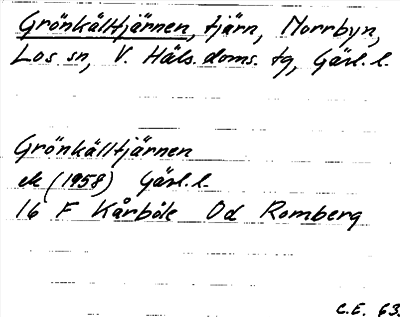 Grönkälltjärnen, tjärn, Norrbyn,
Los sn, V. Häls. doms. tg, Gävl. l.
Grönkälltjärnen
ek (1958) Gävl. l.
16 F Kårböle Od Romberg
C.E. 63.